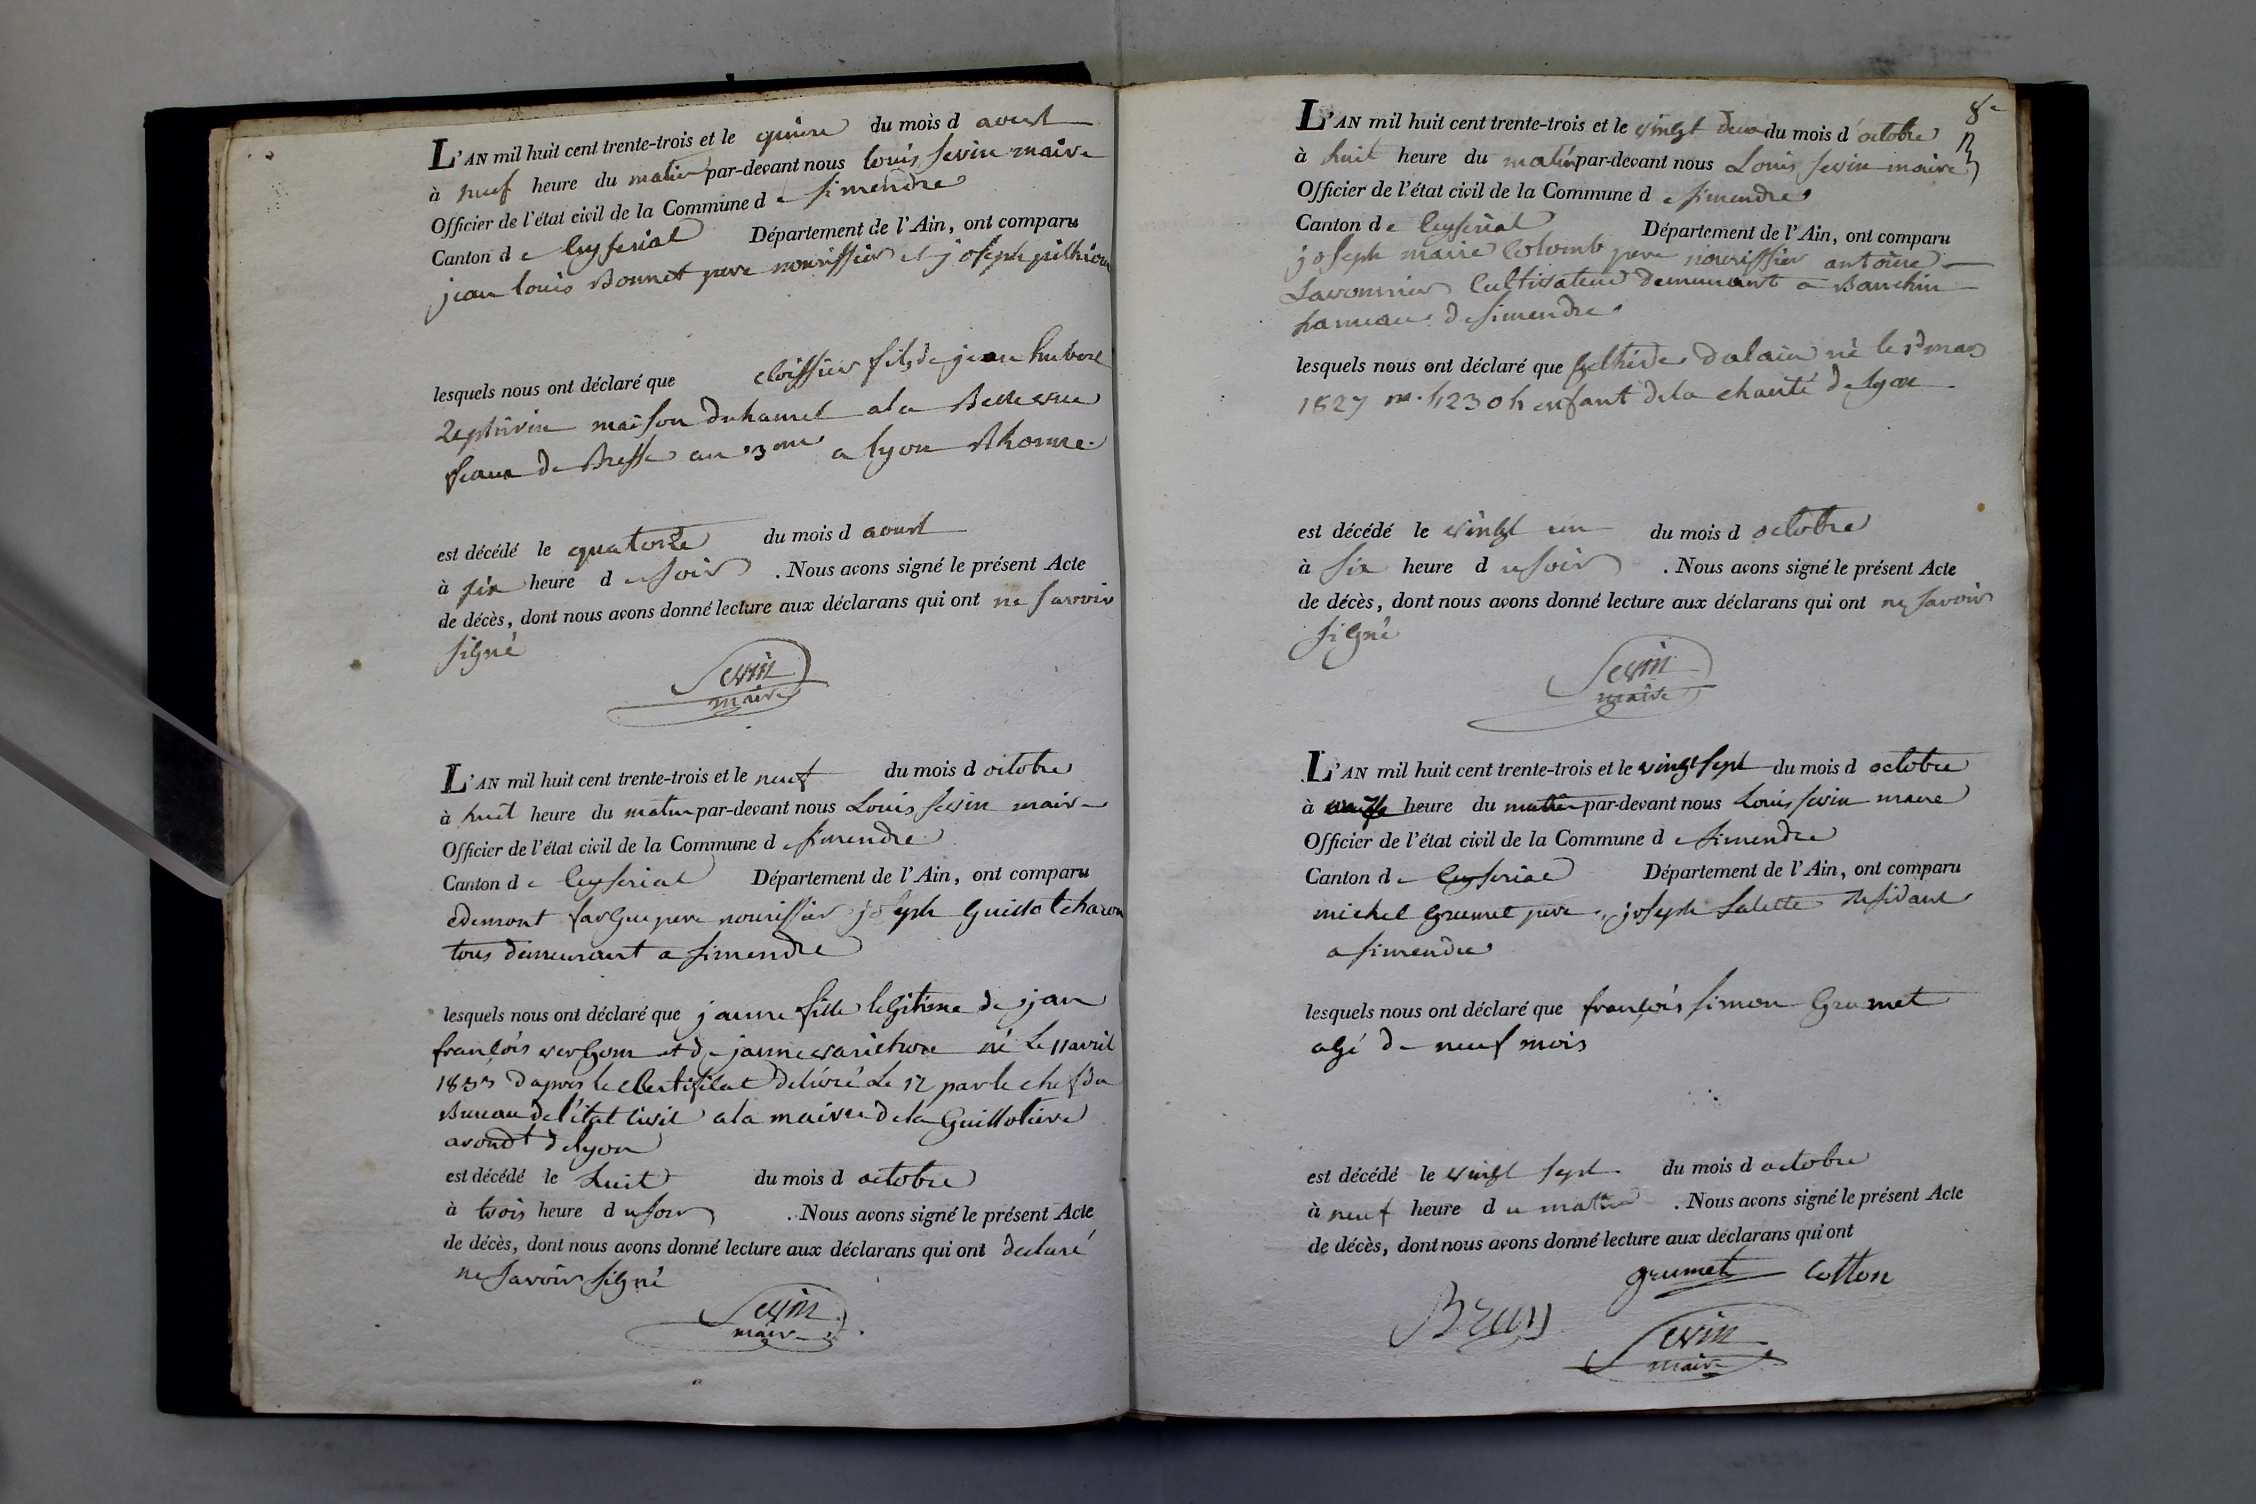 L'AN mil huit cent trente-trois et le quinze du mois d aoust
à neuf heure du matin par-devant nous louis sevin maire
Officier de l'état civil de la Commune d e simendre
Canton d e Ceyseriat Département de l'Ain, ont comparu
jean louis Bonnet pere nourissier et joseph
lesquels nous ont déclaré que fils de jean hubert
Zephirin maison duhamel a la Belle vue
de Bresse au 3me a lyon Rhonne
est décédé le quatorze du mois d aoust
à six heure d u soir . Nous avons signé le présent Acte
de décès, dont nous avons donné lecture aux déclarans qui ont ne savoir
signé
Sevin
maire
L'AN mil huit cent trente-trois et le neuf du mois d octobre
à huit heure du matin par-devant nous Louis sevin maire
Officier de l'état civil de la Commune d e simendre
Canton d e Ceyseriat Département de l'Ain, ont comparu
edemont fargue pere nourissier joseph Guillot charon
tous demeurant a simendre
lesquels nous ont déclaré que janne fille legitime de jan
françois et de janne né Le 11 avril
1833 dapres le certificat délivré Le 12 par le chef du
Bureau de l'état Civil a la mairie de la Guillotiere
arondt de lyon
est décédé le huit du mois d octobre
à trois heure d u soir . Nous avons signé le présent Acte
de décès, dont nous avons donné lecture aux déclarans qui ont declaré
ne savoir signé
Sevin
maire
8e
L'AN mil huit cent trente-trois et le vingt deux du mois d octobre
à huit heure du matin par-devant nous Louis sevin maire
Officier de l'état civil de la Commune d e simendre
Canton d e Ceyseriat Département de l'Ain, ont comparu
joseph marie Colomb pere nourissier antoine
Savonnier Cultivateur demeurant a Banchin
hameau de simendre
lesquels nous ont déclaré que dalain né le mars
1827 enfant de la charité de lyon
est décédé le vingt un du mois d octobre
à six heure d u soir . Nous avons signé le présent Acte
de décès, dont nous avons donné lecture aux déclarans qui ont ne savoir
signé
Sevin
maire
L'AN mil huit cent trente-trois et le vingt sept du mois d octobre
à heure du matin par-devant nous Louis sevin maire
Officier de l'état civil de la Commune d e simendre
Canton d e Ceyseriat Département de l'Ain, ont comparu
michel Grumet pere joseph Salette Residant
a simendre
lesquels nous ont déclaré que françois simon Grumet
agé de neuf mois
est décédé le vingt sept du mois d octobre
à neuf heure d u matin . Nous avons signé le présent Acte
de décès, dont nous avons donné lecture aux déclarans qui ont
grumet Cotton
Sevin
maire